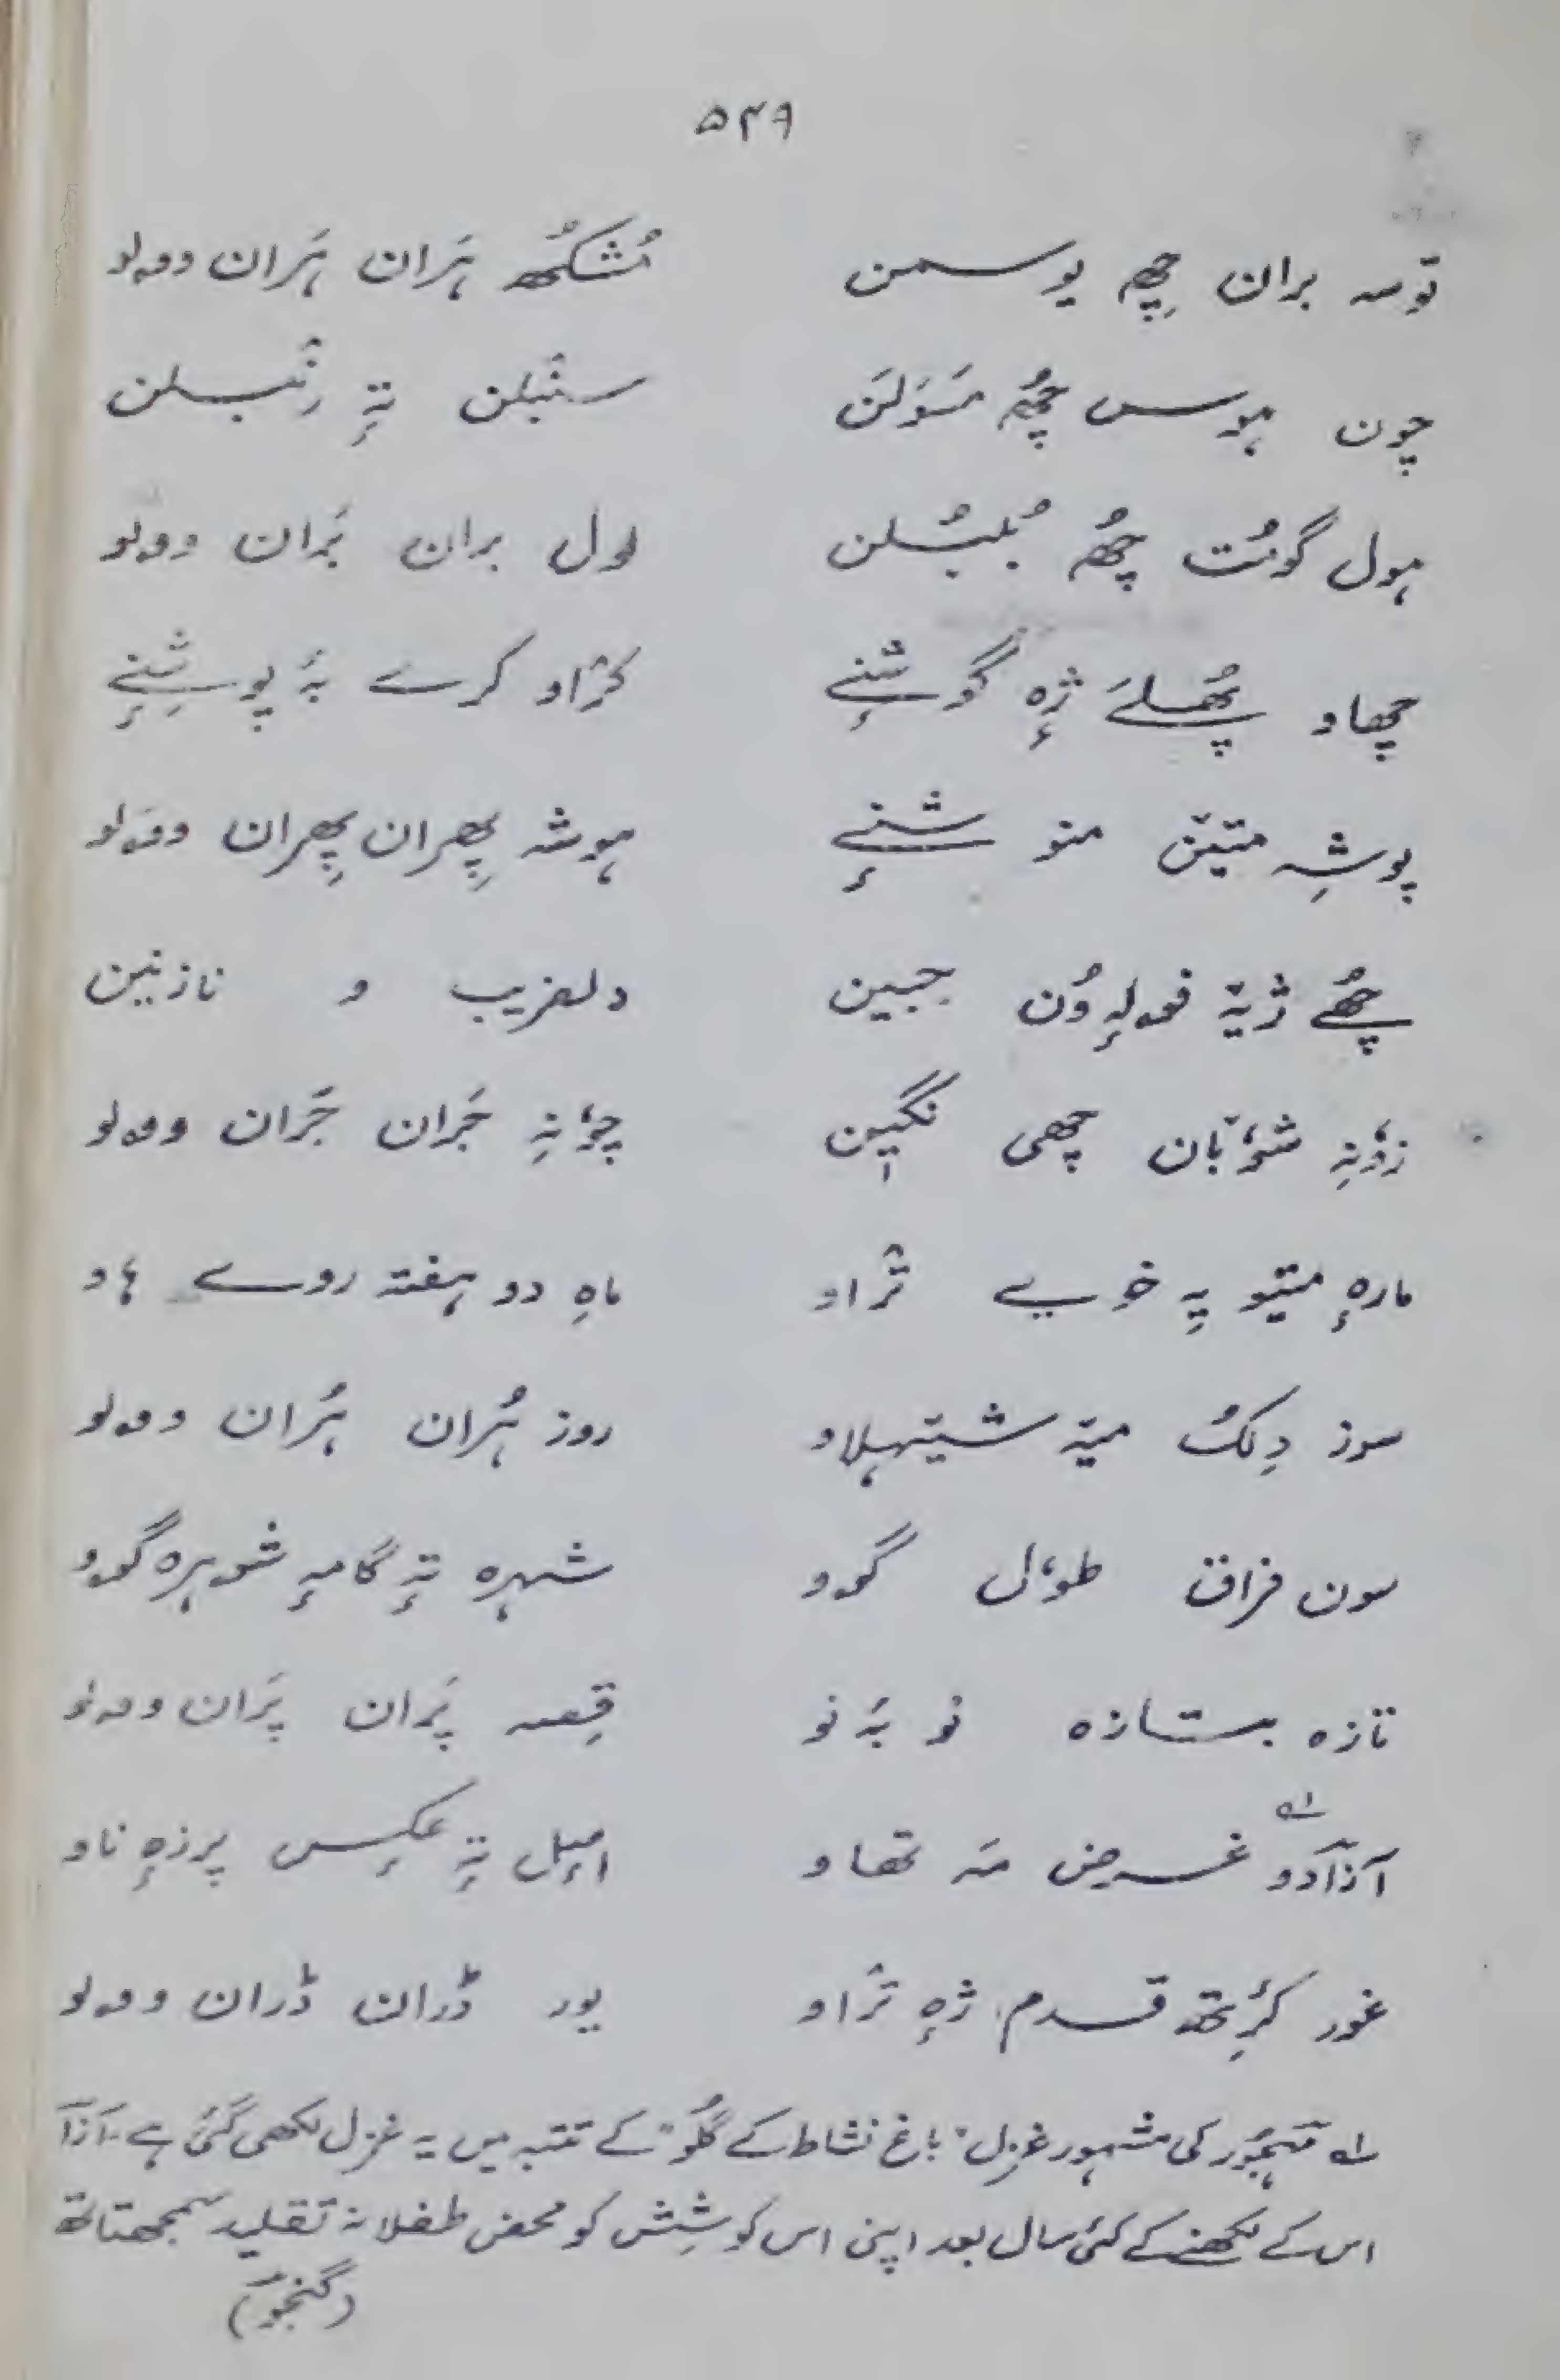 ۵۴۹
توسہ بران چِھہ یوسمن مُشکُھ ہَران ہَران وولو
چون ہوس چُھہ مَسوَلَن سنبلن تہٕ رٕنبلن
ہول گوٚمُت چُھہ بُلبُلن لول بران بَران وولو
چھاو پُھلَے ژہٕ گوشنٕے کرٛاو کرے بہٕ پوشِنٕے
پوشہِ متیٚن منو شنٕے ہوشہ پِھران پِھران وولو
چُھے ژیتہٕ فولہٕ وُن جبین دلفریب و نازنین
زوٗنہِ شوٗبان چھی نگیٖن چوٗنہِ جَران جَران وولو
مارہٕ متیو یہِ خوے ترٛاو ماہِ دو ہفتہ روے ہاو
سوز دِلُک میتہٕ شیتہلاو روز ہُران ہُران وولو
سون فراق طوٗل گوو شہرہ تہٕ گامہٕ شوہرہ گوو
تازہ بستازہ نو بہ نو قِصہ پَران پَران وولو
آزادو؎۱ غرض مہ تھاو امیل تہٕ عکسٕ پرزہٕ ناو
غور کٔرتھ قدم ژہٕ ترٛاو یور ڈران ڈران وولو
؎۱ مہجور کی مشہور غزل "باغ نشاط کے گُلو" کے تتبہ میں یہ غزل لکھی گئی ہے۔ آزاد
اس کے لکھنے کے کئی سال بعد اپنی اس کوشِش کو محض طفلانہ تقلید سمجھتا تھا
(گنجور)